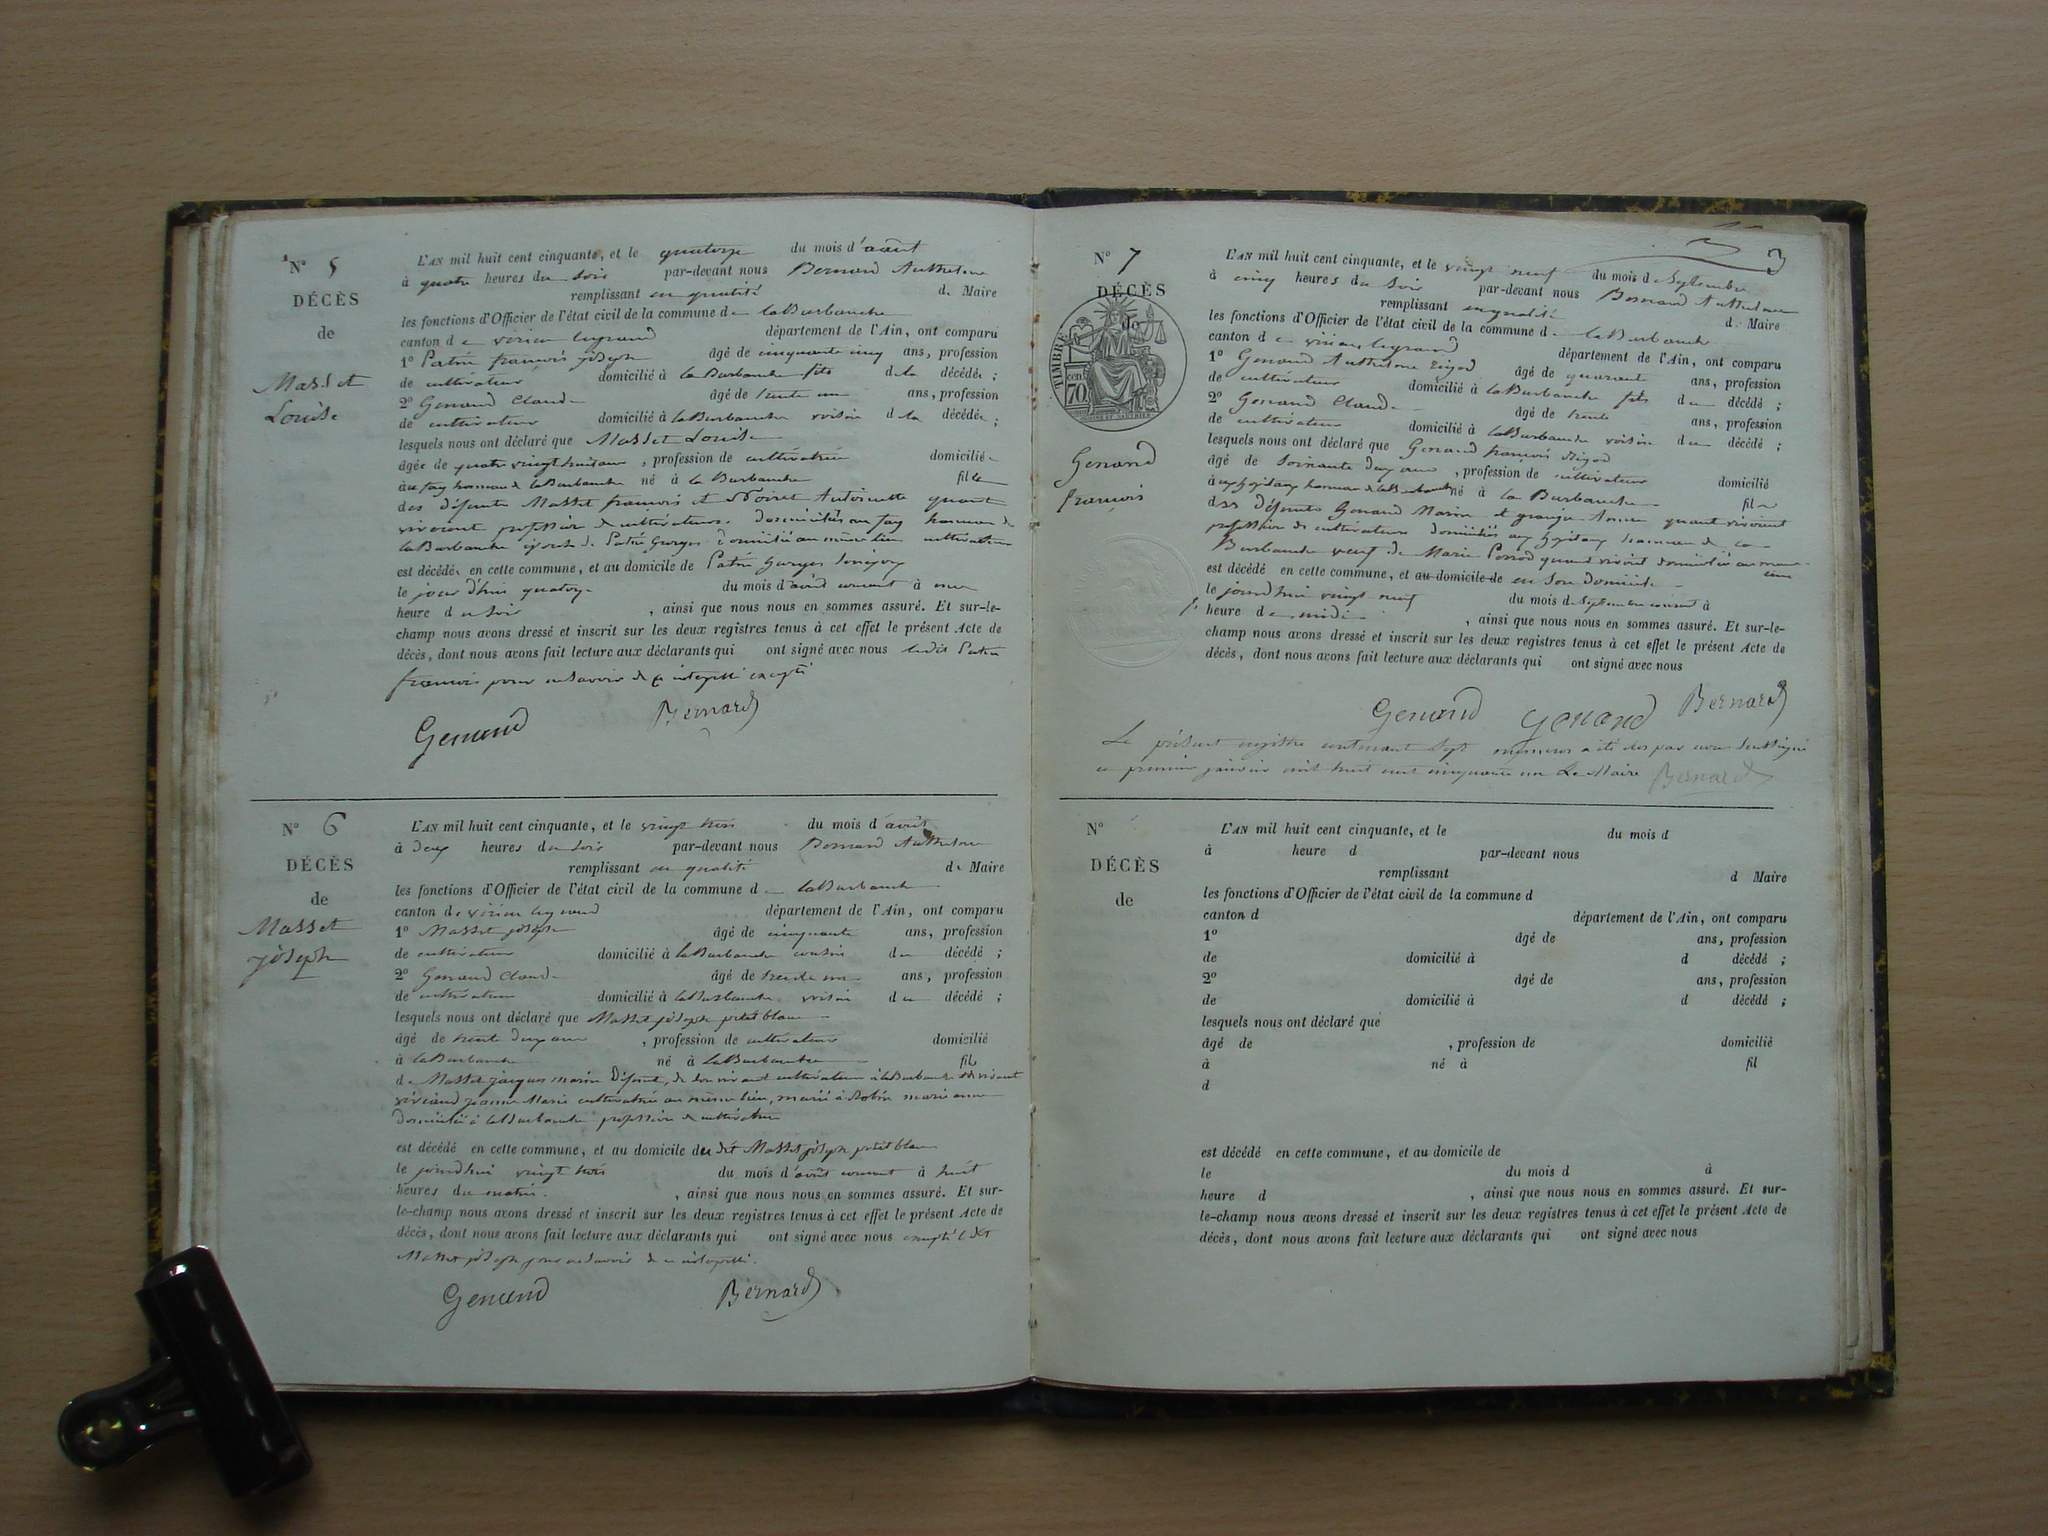 N° 5
DÉCÈS
de
Masset
Louise
L'AN mil huit cent cinquante, et le quatorze du mois d'août
à quatre heures du soir par-devant nous Bernard Anthelme
remplissant en qualité de Maire
les fonctions d'Officier de l'état civil de la commune de laBurbanche
canton de virieu legrand département de l'Ain, ont comparu
1° Patré françois joseph âgé de cinquante cinq ans, profession
de cultivateur domicilié à la Burbanche fils de la décédée ;
2° Genand Claude âgé de trente un ans, profession
de cultivateur domicilié à laBurbanche voisin de la décédée ;
lesquels nous ont déclaré que Masset Louise
âgée de quatre vingt huit ans, profession de cultivatrice domiciliée
au fay hameau de laBurbanche né à la Burbanche fille
des défunts Masset françois et Antoinette quant
vivaient profession de cultivateurs domiciliés au fay hameau de
laBurbanche de Patré Georges domicilié au même lieu cultivateur
est décédée en cette commune, et au domicile de Patré Georges
le jour d'hui quatorze du mois d'août courant à une
heure du soir, ainsi que nous nous en sommes assuré. Et sur-le-
champ nous avons dressé et inscrit sur les deux registres tenus à cet effet le présent Acte de
décès, dont nous avons fait lecture aux déclarants qui ont signé avec nous ledit Patré
françois pour ne savoir de ce interpellé excepté
Genand Bernard
N° 6
DÉCÈS
de
Masset
joseph
L'AN mil huit cent cinquante, et le vingt trois du mois d'août
à deux heures du soir par-devant nous Bernard Anthelme
remplissant en qualité de Maire
les fonctions d'Officier de l'état civil de la commune de laBurbanche
canton de virieu legrand département de l'Ain, ont comparu
1° Masset joseph âgé de cinquante ans, profession
de cultivateur domicilié à laBurbanche cousin du décédé ;
2° Genand Claude âgé de trente un ans, profession
de cultivateur domicilié à laBurbanche voisin du décédé ;
lesquels nous ont déclaré que Masset joseph petit blanc
âgé de trente deux ans, profession de cultivateur domicilié
à laBurbanche né à laBurbanche fils
de Masset jacques marin défunt, de son vivant cultivateur à laBurbanche
jeanne Marie cultivatrice au même lieu, marié à Robin marianne
domicilié à laBurbanche profession de cultivatrice
est décédé en cette commune, et au domicile du dit Masset joseph petit blanc
le jourd'hui vingt trois du mois d'août courant à huit
heures du matin, ainsi que nous nous en sommes assuré. Et sur-
le-champ nous avons dressé et inscrit sur les deux registres tenus à cet effet le présent Acte de
décès, dont nous avons fait lecture aux déclarants qui ont signé avec nous excepté le dit
Masset joseph pour ne savoir de ce interpellé.
Genand Bernard
3
N° 7
DÉCÈS
de
TIMBRE
70
Genand
françois
L'AN mil huit cent cinquante, et le vingt neuf du mois de Septembre
à cinq heures du soir par-devant nous Bernard Anthelme
remplissant en qualité de Maire
les fonctions d'Officier de l'état civil de la commune de laBurbanche
canton de virieu legrand département de l'Ain, ont comparu
1° Genand Anthelme rigod âgé de quarante ans, profession
de cultivateur domicilié à laBurbanche fils du décédé ;
2° Genand Claude âgé de trente ans, profession
de cultivateur domicilié à laBurbanche voisin du décédé ;
lesquels nous ont déclaré que Genand françois rigod
âgé de soixante dix ans, profession de cultivateur domicilié
hameau de laBurbanche né à la Burbanche fils
des défunts Genand Marin et quant vivaient
profession de cultivateurs domiciliés hameau de la
Burbanche veuf de Marie quant vivait domicilié au même
lieu
est décédé en cette commune, et au domicile de en son domicile
le jourd'hui vingt neuf du mois de Septembre courant à
l' heure de midi, ainsi que nous nous en sommes assuré. Et sur-le-
champ nous avons dressé et inscrit sur les deux registres tenus à cet effet le présent Acte de
décès, dont nous avons fait lecture aux déclarants qui ont signé avec nous
Genand Genand Bernard
Le présent registre contenant sept numéros a été clos par nous soussigné
ce premier janvier mil huit cent cinquante un Le Maire Bernard
N°
DÉCÈS
de
L'AN mil huit cent cinquante, et le du mois d
à heure d par-devant nous
remplissant d Maire
les fonctions d'Officier de l'état civil de la commune d
canton d département de l'Ain, ont comparu
1° âgé de ans, profession
de domicilié à d décédé ;
2° âgé de ans, profession
de domicilié à d décédé ;
lesquels nous ont déclaré que
âgé de , profession de domicilié
à né à fil
d
est décédé en cette commune, et au domicile de
le du mois d à
heure d , ainsi que nous nous en sommes assuré. Et sur-
le-champ nous avons dressé et inscrit sur les deux registres tenus à cet effet le présent Acte de
décès, dont nous avons fait lecture aux déclarants qui ont signé avec nous